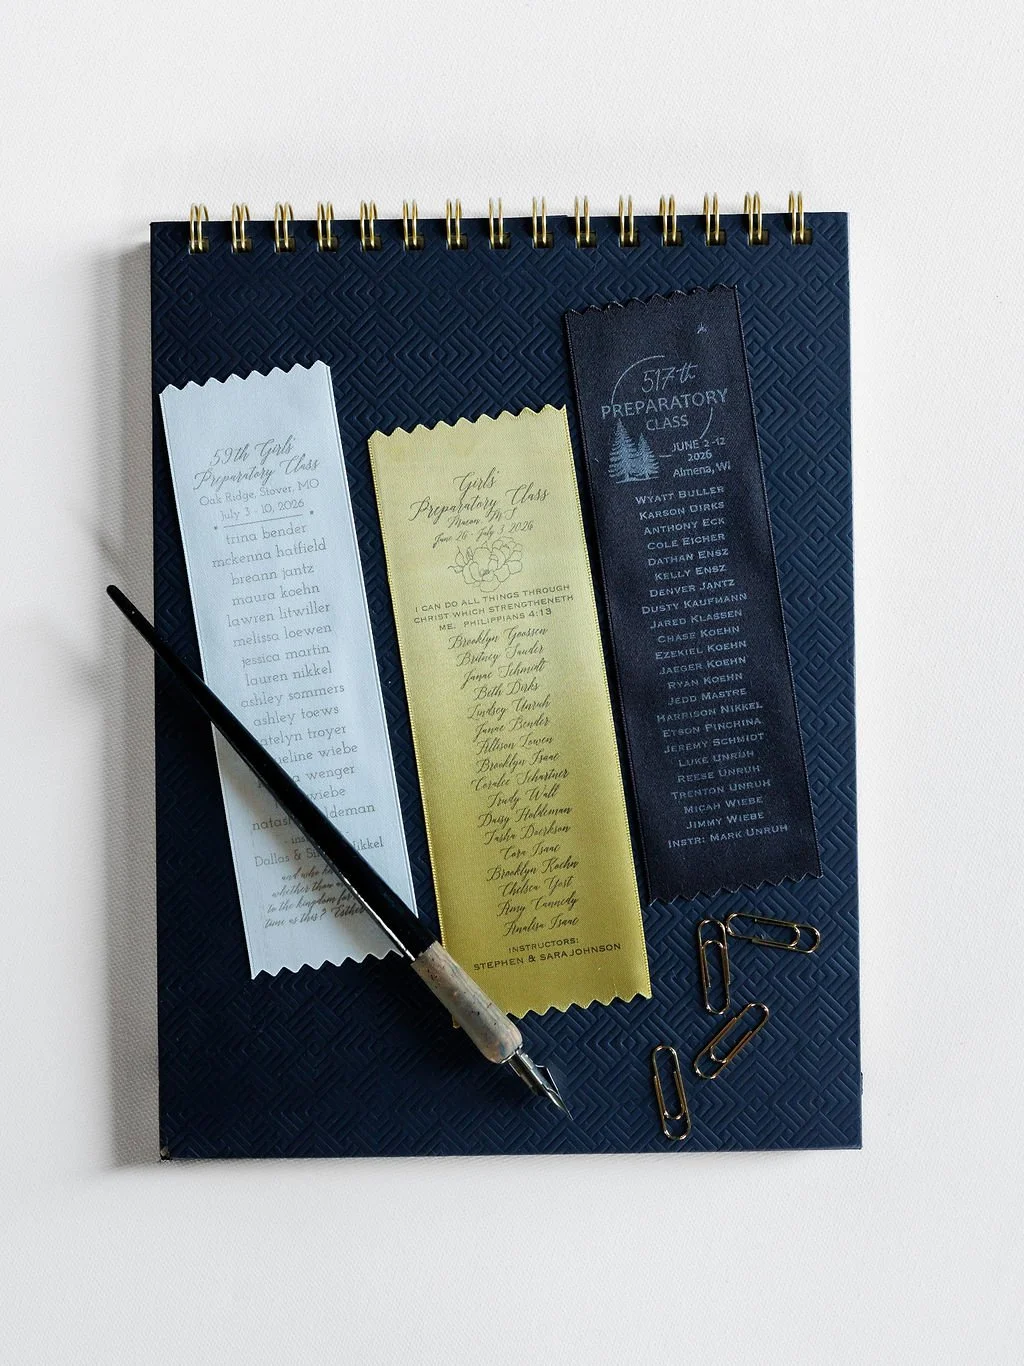 59th Girls'
Preparatory Class
Oak Ridge, Stover, MO
July 3 - 10, 2026
trina bender
mckenna hatfield
breann jantz
maura koehn
lawren litwiller
melissa loewen
jessica martin
lauren nikkel
ashley sommers
ashley toews
atelyn troyer
ueline wiebe
wenger
wiebe
natas ldeman
Dallas & Nikkel
and who
whether thou
to the kingdom for
time as this? Esther
Girls'
Preparatory Class
Macon, MS
June 26 - July 3, 2026
I CAN DO ALL THINGS THROUGH
CHRIST WHICH STRENGTHENETH
ME. PHILIPPIANS 4:13
Brooklyn Goossen
Britney Sauder
Janae Schmidt
Beth Dirks
Lindsey Unruh
Janae Bender
Jillison Lowen
Brooklyn Isaac
Coralee Schartner
Trudy Wall
Daisy Holdeman
Tasha Doerksen
Cara Isaac
Brooklyn Koehn
Chelsea Yost
Amy Cannedy
Analisa Isaac
INSTRUCTORS:
STEPHEN & SARA JOHNSON
517th
PREPARATORY
CLASS
JUNE 2-12
2026
Almena, WI
WYATT BULLER
KARSON DIRKS
ANTHONY ECK
COLE EICHER
DATHAN ENSZ
KELLY ENSZ
DENVER JANTZ
DUSTY KAUFMANN
JARED KLASSEN
CHASE KOEHN
EZEKIEL KOEHN
JAEGER KOEHN
RYAN KOEHN
JEDD MASTRE
HARRISON NIKKEL
ETSON PINCHINA
JEREMY SCHMIDT
LUKE UNRUH
REESE UNRUH
TRENTON UNRUH
MICAH WIEBE
JIMMY WIEBE
INSTR: MARK UNRUH